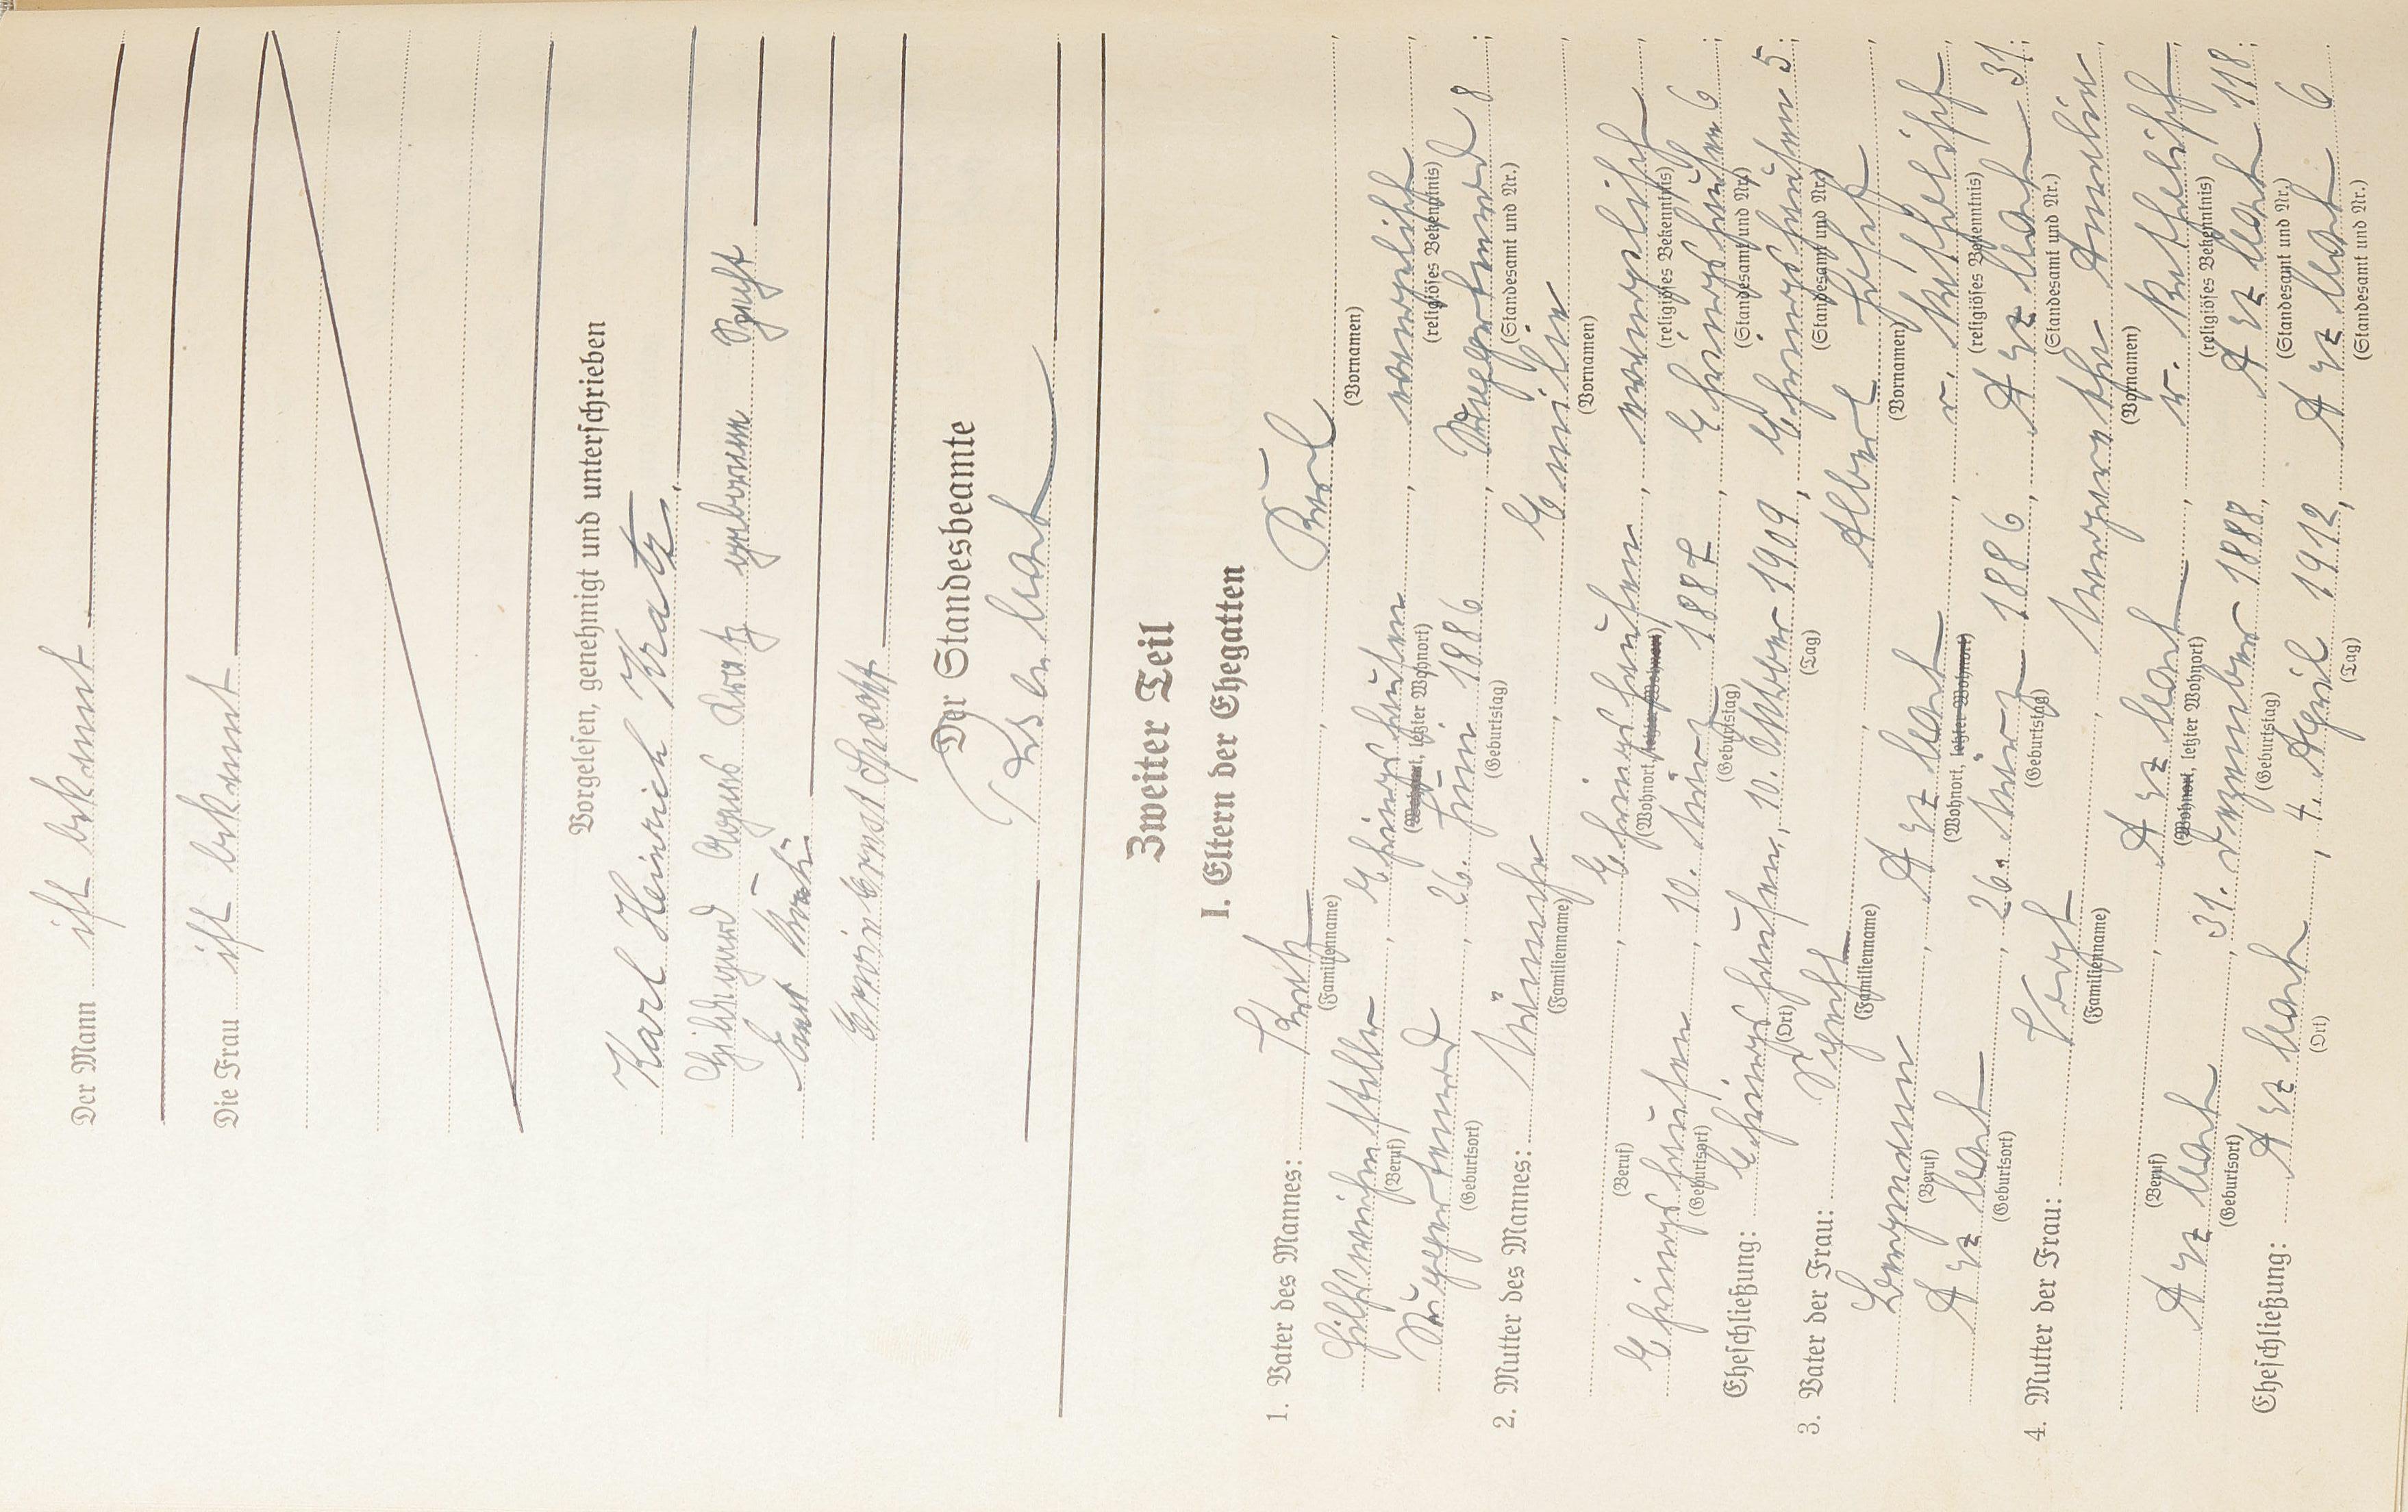 Der Mann ist bekannt
Die Frau ist bekannt
Vorgelesen, genehmigt und unterschrieben
Karl Heinrich Kratz.
Hildegard Agnes Kratz geborene Specht
Ernst
Erwin Ernst Specht
Der Standesbeamte
Zweiter Teil
I. Eltern der Ehegatten
1. Vater des Mannes: Kratz, Karl
(Familienname) (Vornamen)
Hilfsweichensteller, Ehringshausen, evangelisch
(Beruf) (Wohnort, letzter Wohnort) (religiöses Bekenntnis)
Ruppertenrod, 26. Juni 1886, Ruppertenrod 8;
(Geburtsort) (Geburtstag) (Standesamt und Nr.)
2. Mutter des Mannes: Emilie
(Familienname) (Vornamen)
Ehringshausen, evangelisch
(Beruf) (Wohnort, letzter Wohnort) (religiöses Bekenntnis)
Ehringshausen, 10. März 1887, Ehringshausen 6;
(Geburtsort) (Geburtstag) (Standesamt und Nr.)
Eheschließung: Ehringshausen, 10. Oktober 1909, Ehringshausen 5;
(Ort) (Tag) (Standesamt und Nr.)
3. Vater der Frau: Specht, Albert Josef
(Familienname) (Vornamen)
Bergmann, r. katholisch
(Beruf) (Wohnort, letzter Wohnort) (religiöses Bekenntnis)
26. März 1886, 31;
(Geburtsort) (Geburtstag) (Standesamt und Nr.)
4. Mutter der Frau: Margarethe Amalie
(Familienname) (Vornamen)
r. katholisch
(Beruf) (Wohnort, letzter Wohnort) (religiöses Bekenntnis)
31. Dezember 1888, 118;
(Geburtsort) (Geburtstag) (Standesamt und Nr.)
Eheschließung: 4. April 1912, 6
(Ort) (Tag) (Standesamt und Nr.)